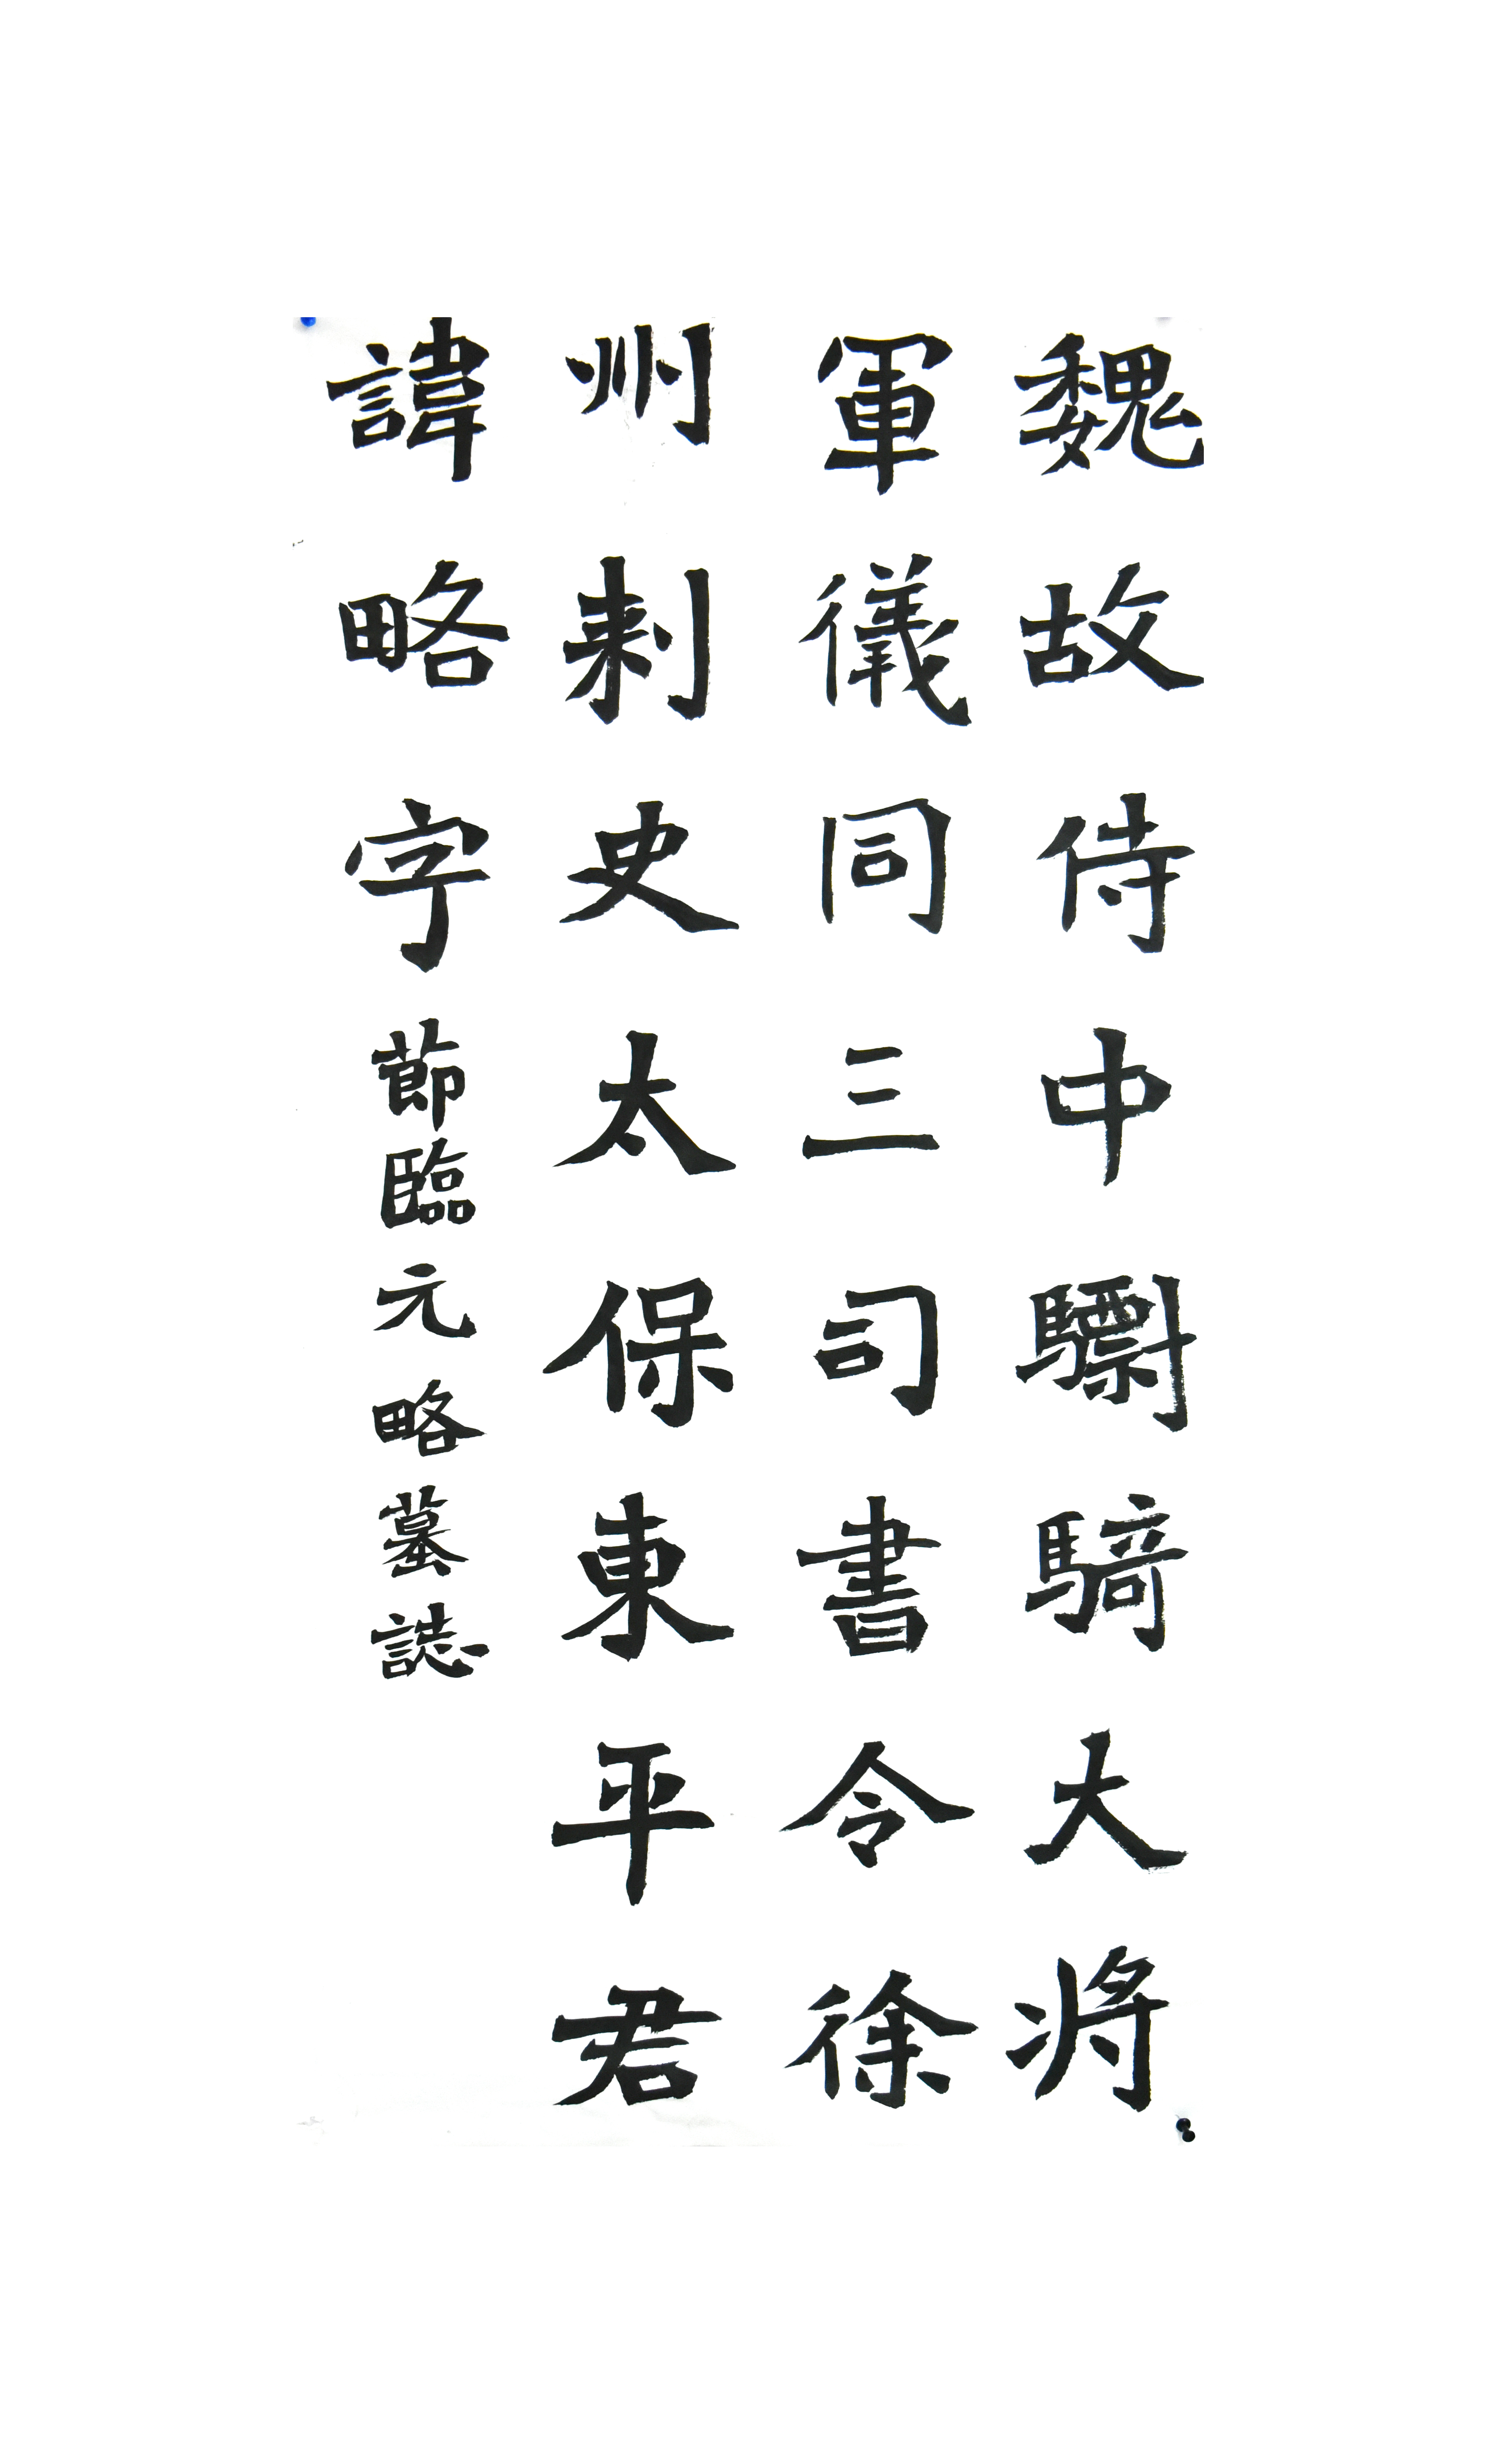 魏故侍中驃騎大將
軍儀同三司書令徐
州刺史太保東平君
諱略字節臨元略墓誌